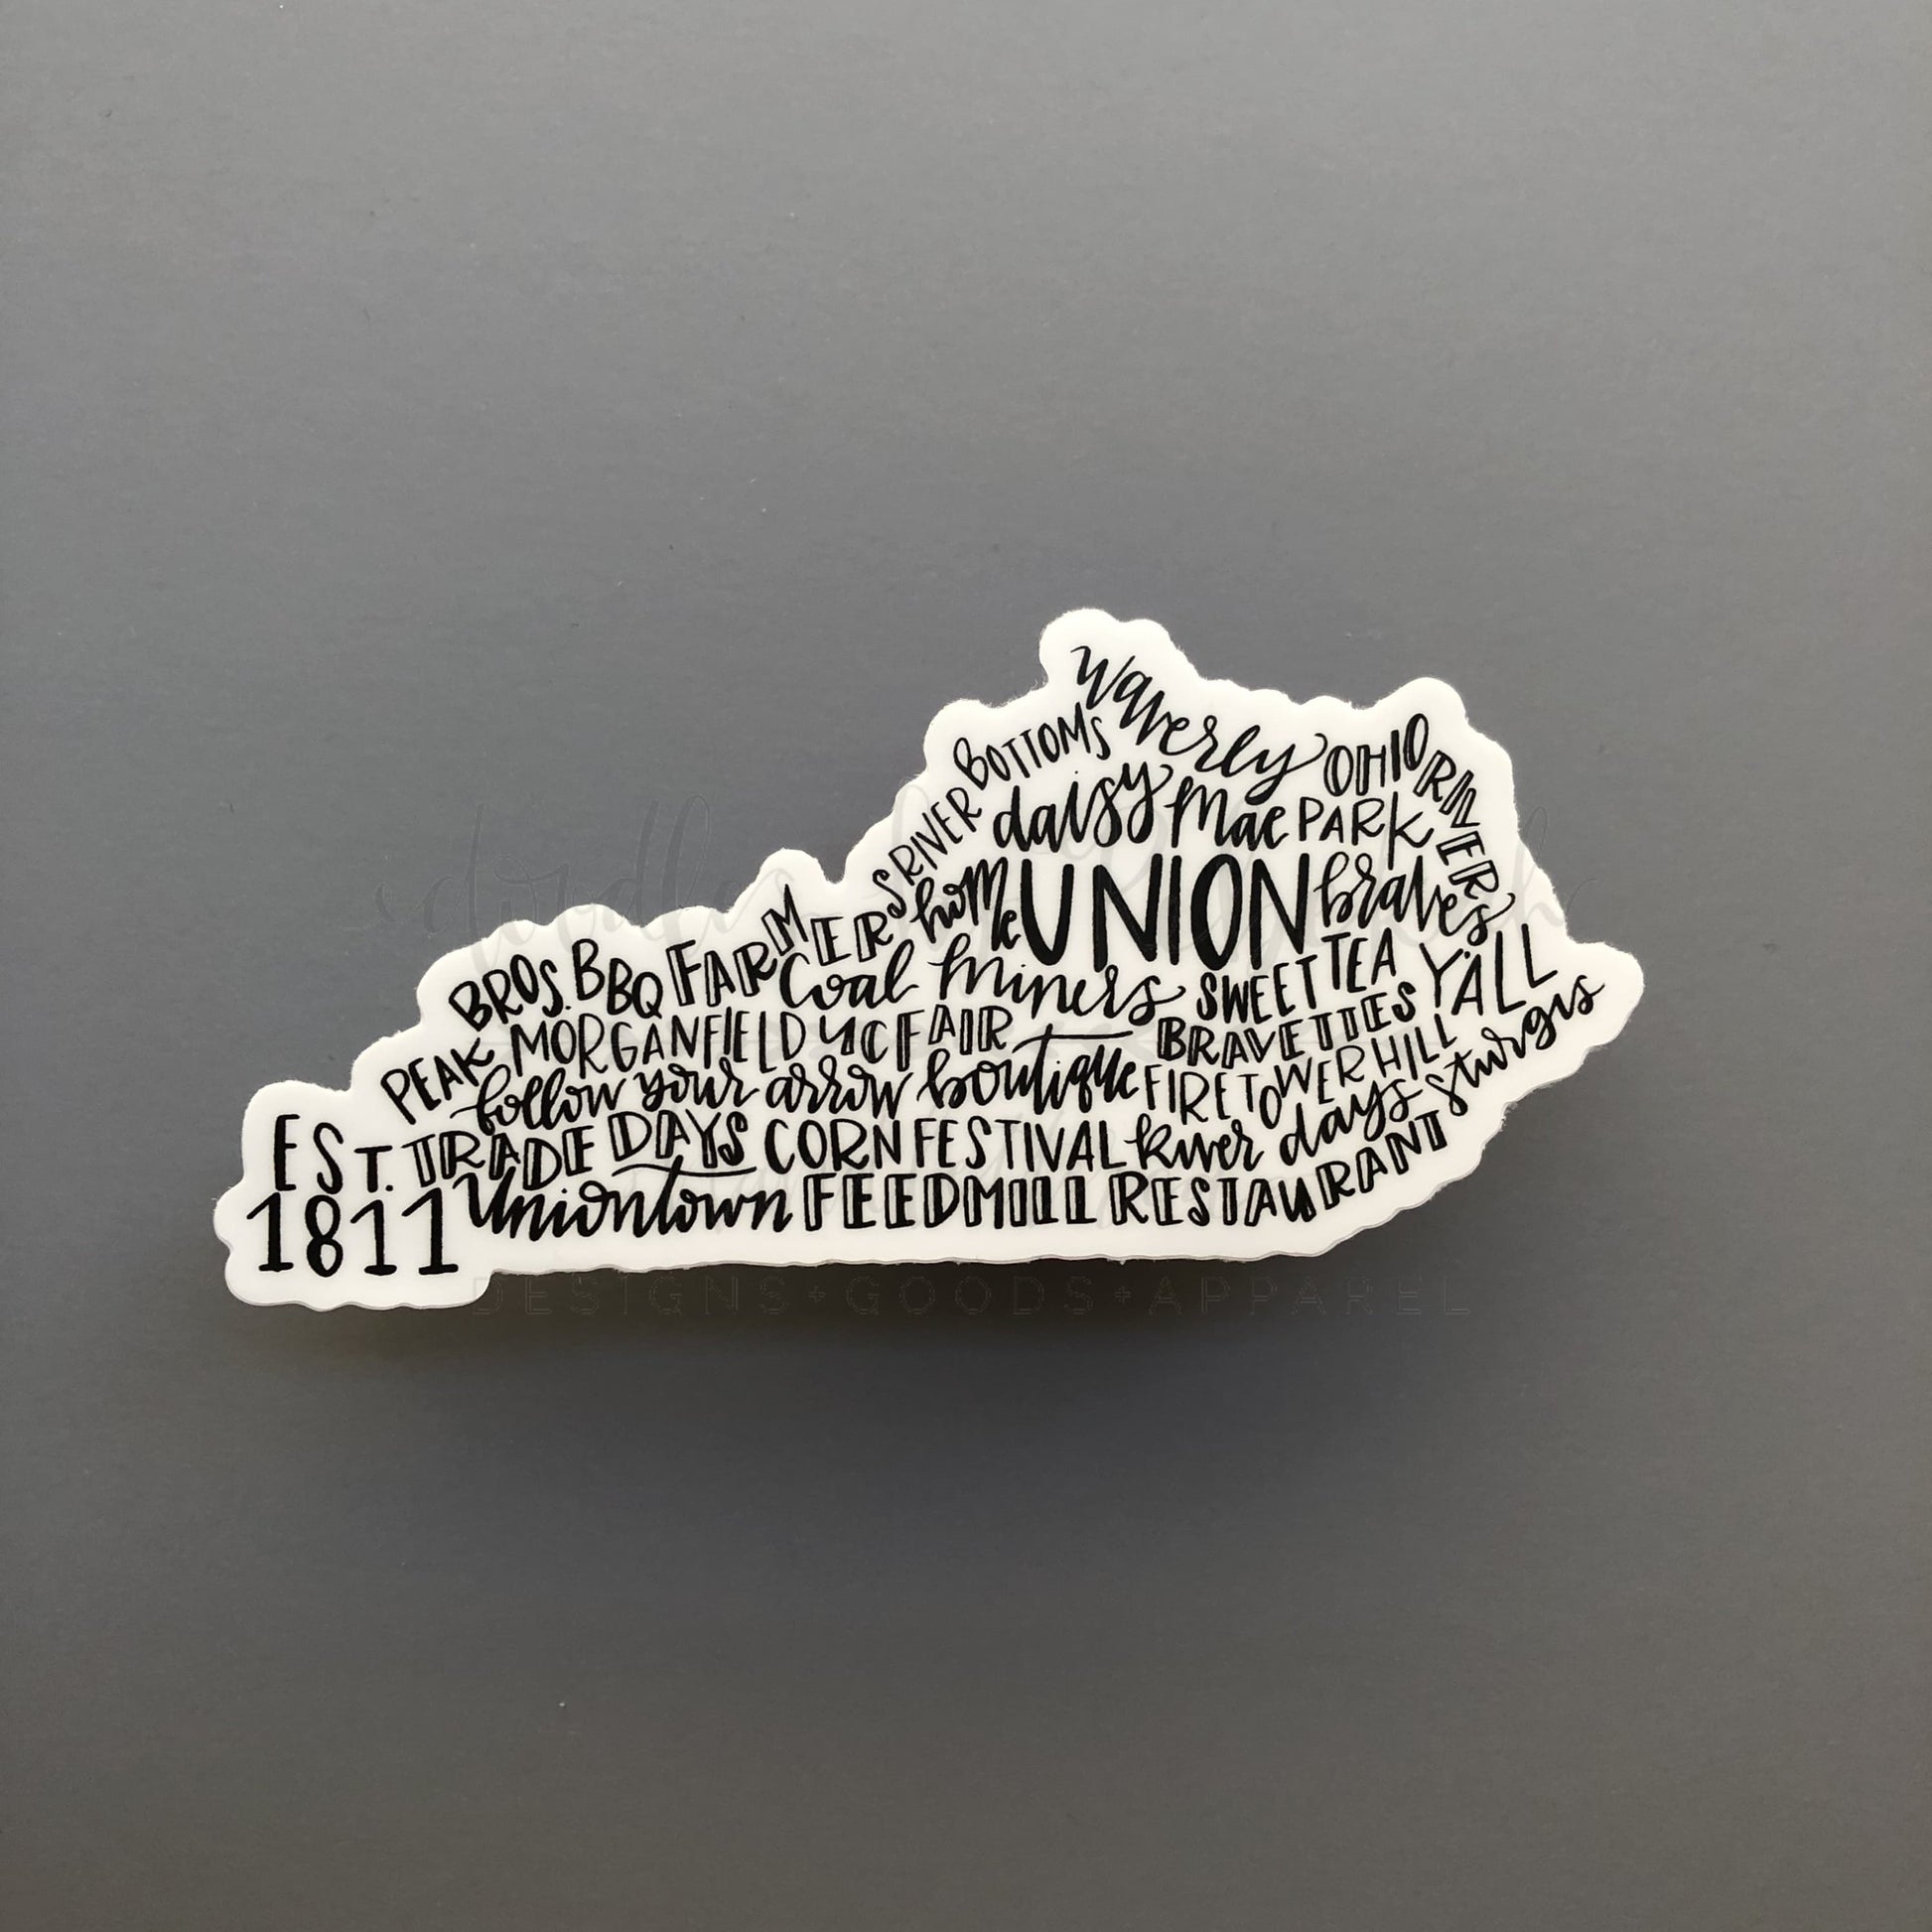 Waverly
RIVER BOTTOMS
OHIO RIVER
daisy Mae PARK
home UNION braves
FARMERS
PEAK BROS. BBQ
Coal Miners SWEET TEA Y'ALL
MORGANFIELD UC FAIR BRAVETTES
follow your arrow boutique FIRETOWER HILL sturgis
EST. 1811
TRADE DAYS CORN FESTIVAL River days
Uniontown FEEDMILL RESTAURANT
DESIGNS+GOODS+APPAREL